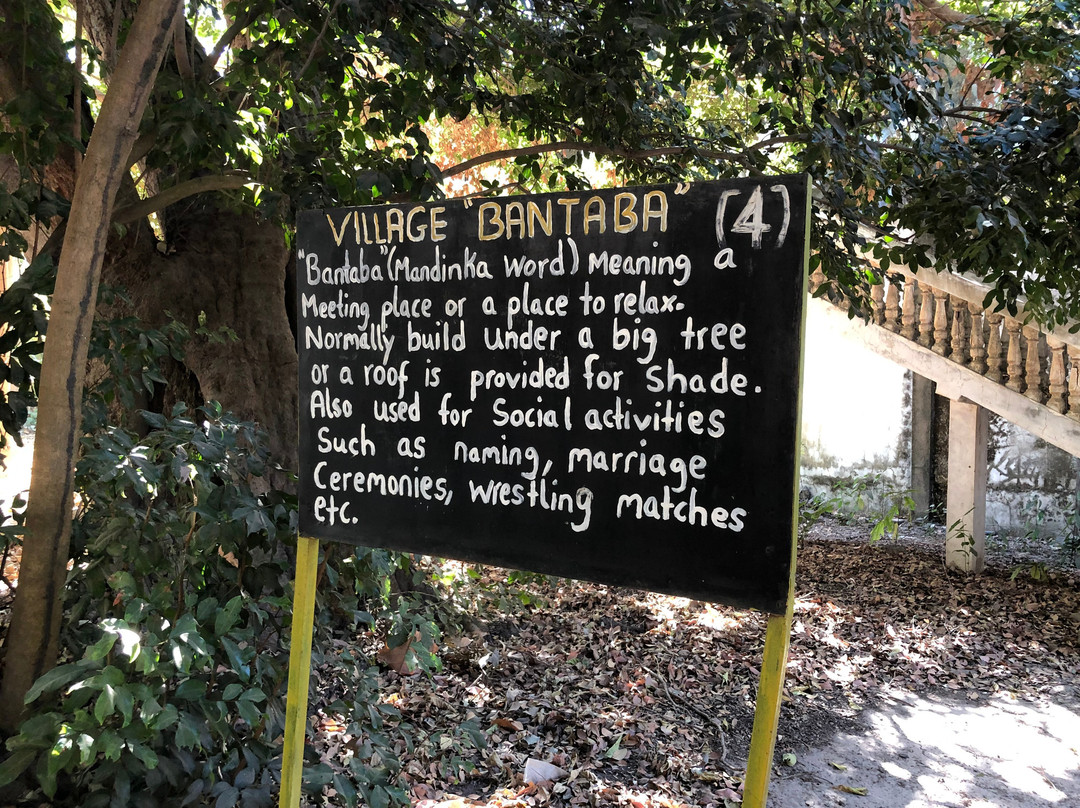 VILLAGE "BANTABA" (4)
"Bantaba" (Mandinka word) Meaning a
Meeting place or a place to relax.
Normally build under a big tree
or a roof is provided for Shade.
Also used for Social activities
Such as naming, marriage
Ceremonies, wrestling matches
etc.